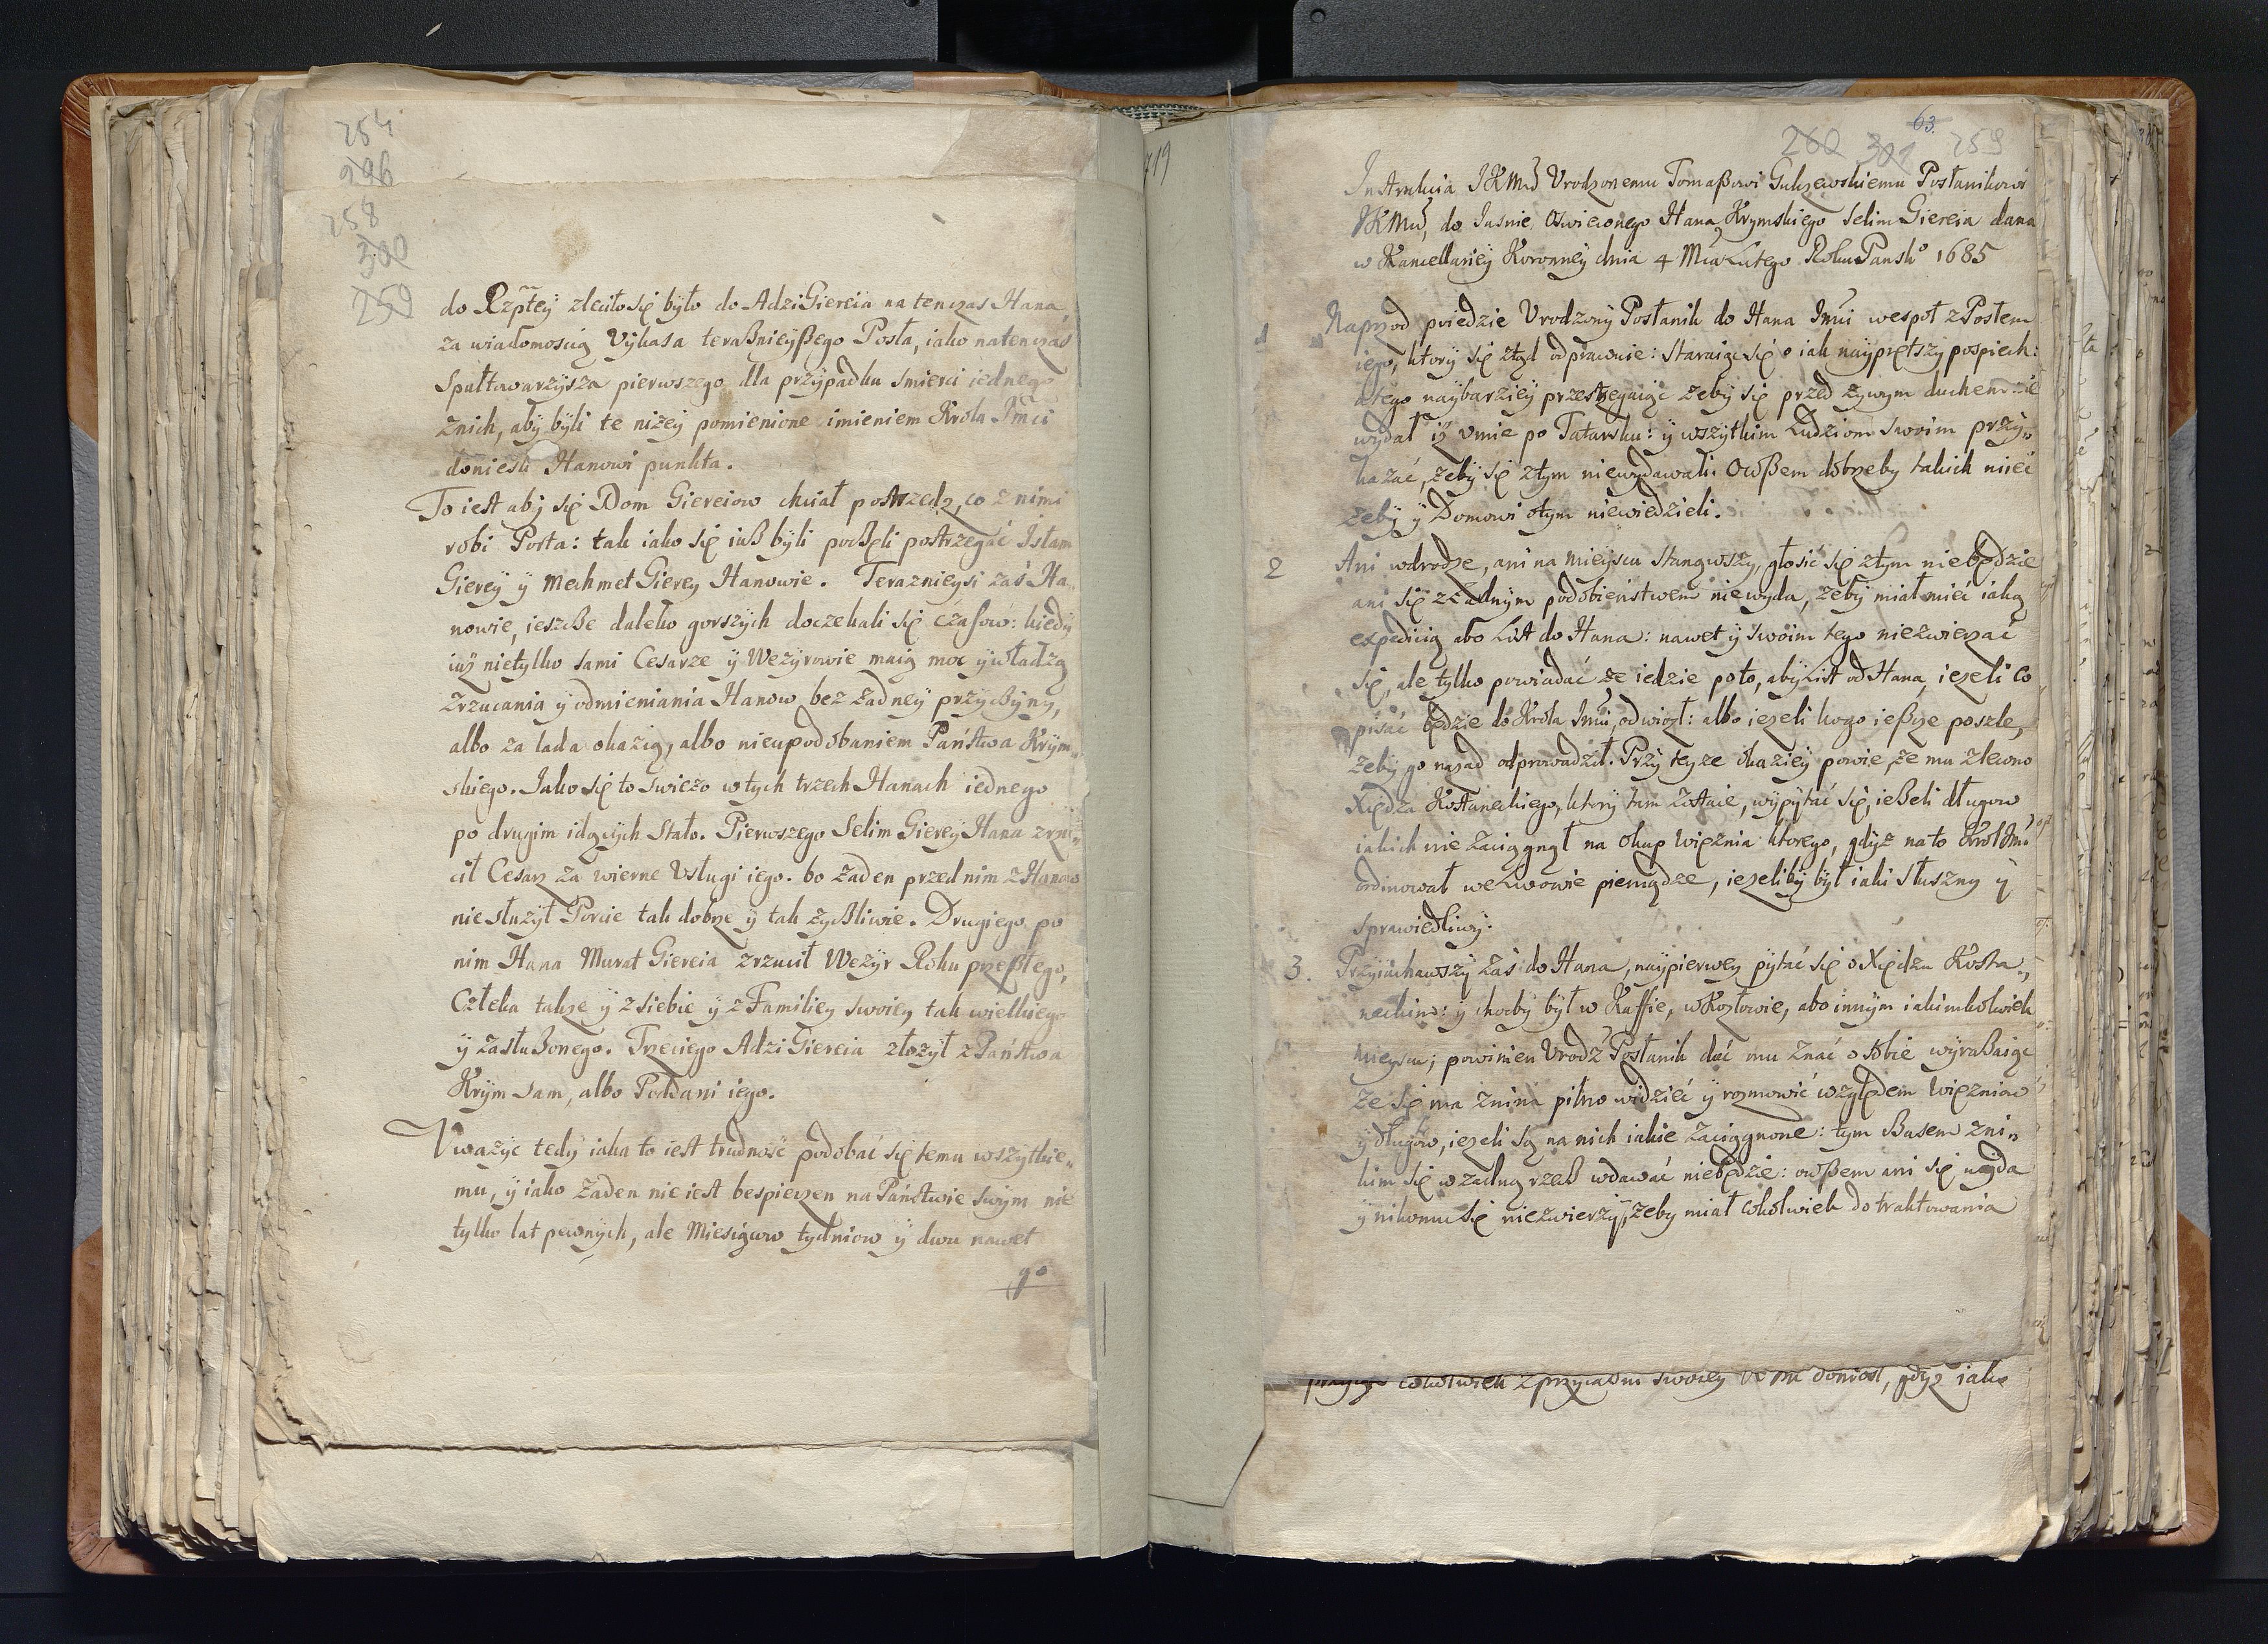 254
296
258
300
259
do Rzptey zleciło się było do AdziGiereia na tenczas Hana,
za wiadomoscią Vÿkasa teraßnieÿßego Posła, iako natenczas
Spułtowarzÿsza pierwszego dla przÿpadku smierci iednego
znich, abÿ bÿli te niżeÿ pomienione imieniem Krola Jmci
donieśli Hanowi punkta.
To iest abÿ się Dom Giereiow chciał postrzedz, co z nimi
robi Porta: tak iako się iuß bÿli poczęli postrzegać Islam
Giereÿ ÿ Mechmet Gierey Hanowie. Teraznieysi zaś Ha„
nowie, ieszcße daleko gorszÿch doczekali się czasow: kiedÿ
iuż nietylko sami Cesarze ÿ Wezÿrowie maią moc ÿ władzą
zrzucania ÿ odmieniania Hanow bez żadneÿ przÿcßÿnÿ,
albo za lada okazią, albo nieupodobaniem Państwa Krÿm„
skiego. Jako się to swieżo w tych trzech Hanach iednego
po drugim idących stało. Pierwszego Selim GiereÿHana zrzu„
cił Cesarz za wierne Vsługi iego. bo żaden przed nim z Hanow
nie służÿł Porcie tak dobrze ÿ tak zÿcßliwie. Drugiego po
nim Hana Murat Giereia zrzucił Wezÿr Roku przeßłego,
Człeka także ÿ z siebie ÿ z Familieÿ swoieÿ tak wielkiego
ÿ zasłuBonego. Trzeciego Adzi Giereia złożÿł z Państwa
Krÿm sam, albo Poddani iego.
Vważÿc tedÿ iaka to iest trudność podobać się temu wszÿtkie„
mu, ÿ iako żaden nie iest bespieczen na Państwie swÿm nie
tylko lat pewnÿch, ale Miesiącow tÿdniow ÿ dwu nawet
go
719
63.
260 301 259
Instrukcia JKMci Vrodzonemu Tomaßowi Gulczewskiemu Posłanikowi
JKMci, do Jasnie Oswieconego Hana Krymskiego Selim Giereia dana
w Kancellarieÿ Koronneÿ dnia 4 Mca Lutego Roku Pansko 1685
1 Naprzod poiedzie Vrodzonÿ Posłanik do Hana Jmci wespoł z Posłem
iego, ktorÿ się ztąd odprawuie: staraiąc się o iak naÿprętszÿ pospiech:
a tego naÿbarzieÿ przestrzegaiąc żebÿ się przed żÿwym duchem nie
wÿdał iż vmie po Tatarsku: ÿ wszÿtkim Ludziom swoim przÿ„
kazać, żebÿ się ztÿm niewÿdawali. Owßem dobrzeby takich mieć
żebÿ ÿ Domowi otÿm niewiedzieli.
2 Ani wdrodze, ani na mieÿscu stanąwszy, głosić się ztÿm niebędzie
ani się zżadnÿm podobieństwem niewyda, żebÿ miał mieć iaką
expedicią abo List do Hana: nawet ÿ swoim tego niezwierzać
się, ale tylko powiadać że iedzie poto, abÿ List od Hana, ieżeli co
pisać będzie do Krola Jmci, odwiozł: albo ieżeli kogo ießcze poszle,
żebÿ go nazad odprowadził. Przÿ teÿże okazieÿ powie, że mu zlecono
Xiędza Kostaneckiego, ktorÿ tam zostaie, wÿpÿtać się, ießeli długow
iakich nie zaciągnął na okup więznia ktorego, gdÿż na to KrolJmc
ordinował weLwowie pieniądze, ieżelibÿ był iaki słusznÿ ÿ
sprawiedliwÿ.
3. Przÿiachawszÿ zaś do Hana, naÿpierweÿ pÿtać się o Xiędzu Kosta„
neckim: ÿ choćbÿ bÿł w Kaffie, w Kozłowie, abo innÿm iakimkolwiek
mieyscu; powinien Vrodz Posłanik dać mu znać o sobie wÿraßaiąc
że się ma znim pilno widzieć ÿ rozmowić względem więzniow
ÿ długow, ieżeli są na nich iakie zaciągnone: tym czasem zni„
kim się w żadną rzecz wdawać niebędzie: owßem ani się wÿda
ÿ nikomu się niezwierzÿ, żeby miał cokolwiek do traktowania
cokolwiek z przyiazni swoieÿ doniosł, gdyż iako